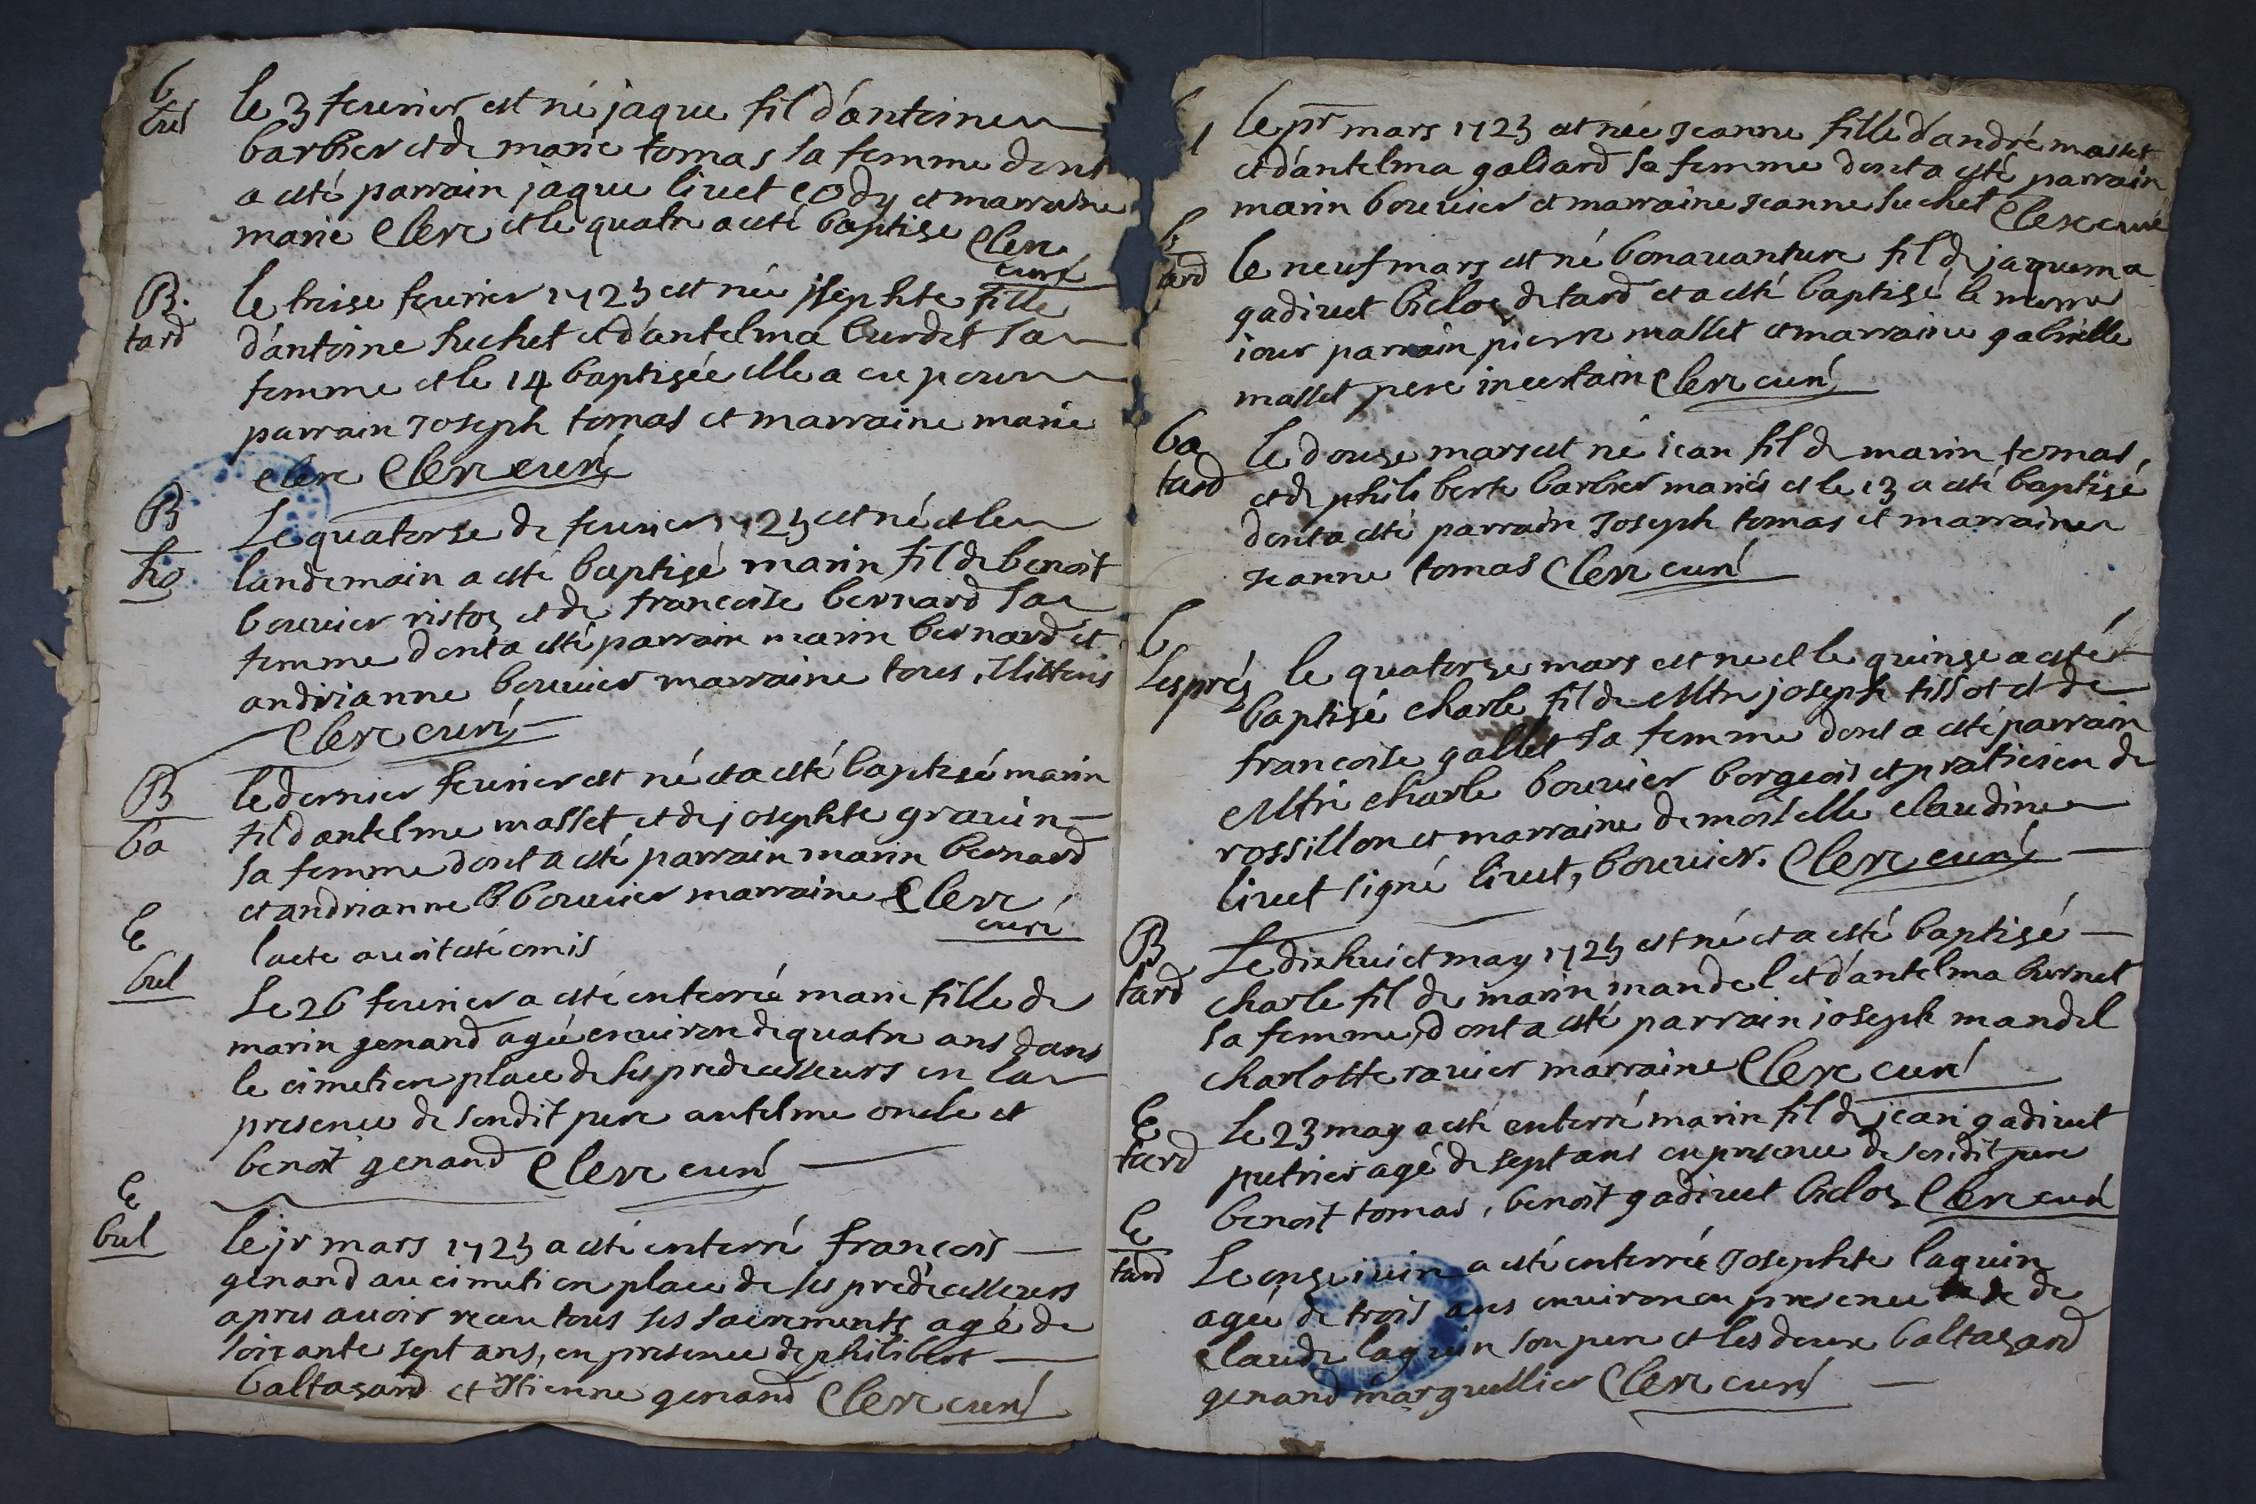 b
cres
le 3 feurier est né jaque fil d'antoine
barbier et de marie tomas sa femme dont
a esté parrain jaque livet cody et marraine
marie Clerc et le quatre a esté baptise Clerc
curé
B.
tard
le treise feurier 1723 est née josephte fille
d'antoine suchet et d'antelma burdet sa
femme et le 14 baptisée elle a eu pour
parrain Joseph tomas et marraine marie
clerc Clerc curé
B
ho
Le quatorse de feurier 1723 est né et le
landemain a esté baptisé marin fil de benoit
bouvier ristoz et de francoise bernard sa
femme dont a esté parrain marin bernard et
andrianne bouvier marraine tous illitterés
Clerc curé
B
ba
le dernier feurier est né et a esté baptisé marin
fil d'antelme masset et de josephte gravin
sa femme dont a esté parrain marin bernard
et andrianne bouvier marraine Clerc
curé
E
bul
lacte avoit esté omis
Le 26 feurier a esté enterrée marie fille de
marin genand agée environ de quatre ans dans
le cimetiere place de ses predecesseurs en la
presence de sondit pere antelme oncle et
benoit genand Clerc curé
E
bul
le jr mars 1723 a esté enterré francois
genand au cimetiere place de ses predecesseurs
apres avoir receu tous ses sacrements agé de
soixante sept ans, en presence de philibert
baltasard et Etienne genand Clerc curé
le pr mars 1723 est née Jeanne fille d'andré masset
et d'antelma galliard sa femme dont a esté parrain
marin bouvier et marraine Jeanne suchet Clerc curé
b
tard
le neuf mars est né bonavanture fil de jaquema
gadivet bicloz de tard et a esté baptisé le mesme
iour parrain pierre masset et marraine gabrielle
masset pere incertain Clerc curé
ba
tard
le douse mars est né jean fil de marin tomas,
et de philiberte barbier mariés et le 13 a esté baptisé
dont a esté parrain Joseph tomas et marraine
Jeanne tomas Clerc curé
b
les prés
le quatorze mars est né et le quinse a esté
baptisé charle fil de Mtre joseph tissot et de
francoise gallet sa femme dont a esté parrain
Mtre charle bouvier borgeois et praticien de
rossillon et marraine demoiselle claudine
livet signé livet, bouvier. Clerc curé
B
tard
Le dix huict may 1723 est né et a esté baptisé
charle fil de marin mandel et d'antelma burnet
sa femme, dont a esté parrain joseph mandel
charlotte ravier marraine Clerc curé
E
tard
Le 23 may a esté enterré marin fil de jean gadivet
putrier agé de sept ans en presence de sondit pere
benoit tomas, benoit gadivet bicloz Clerc curé
E
tard
Le onze iuin a esté enterrée Josephte laguin
agée de trois ans environ en presence de
claude laguin son pere et les deux baltasard
genand marguellier Clerc curé